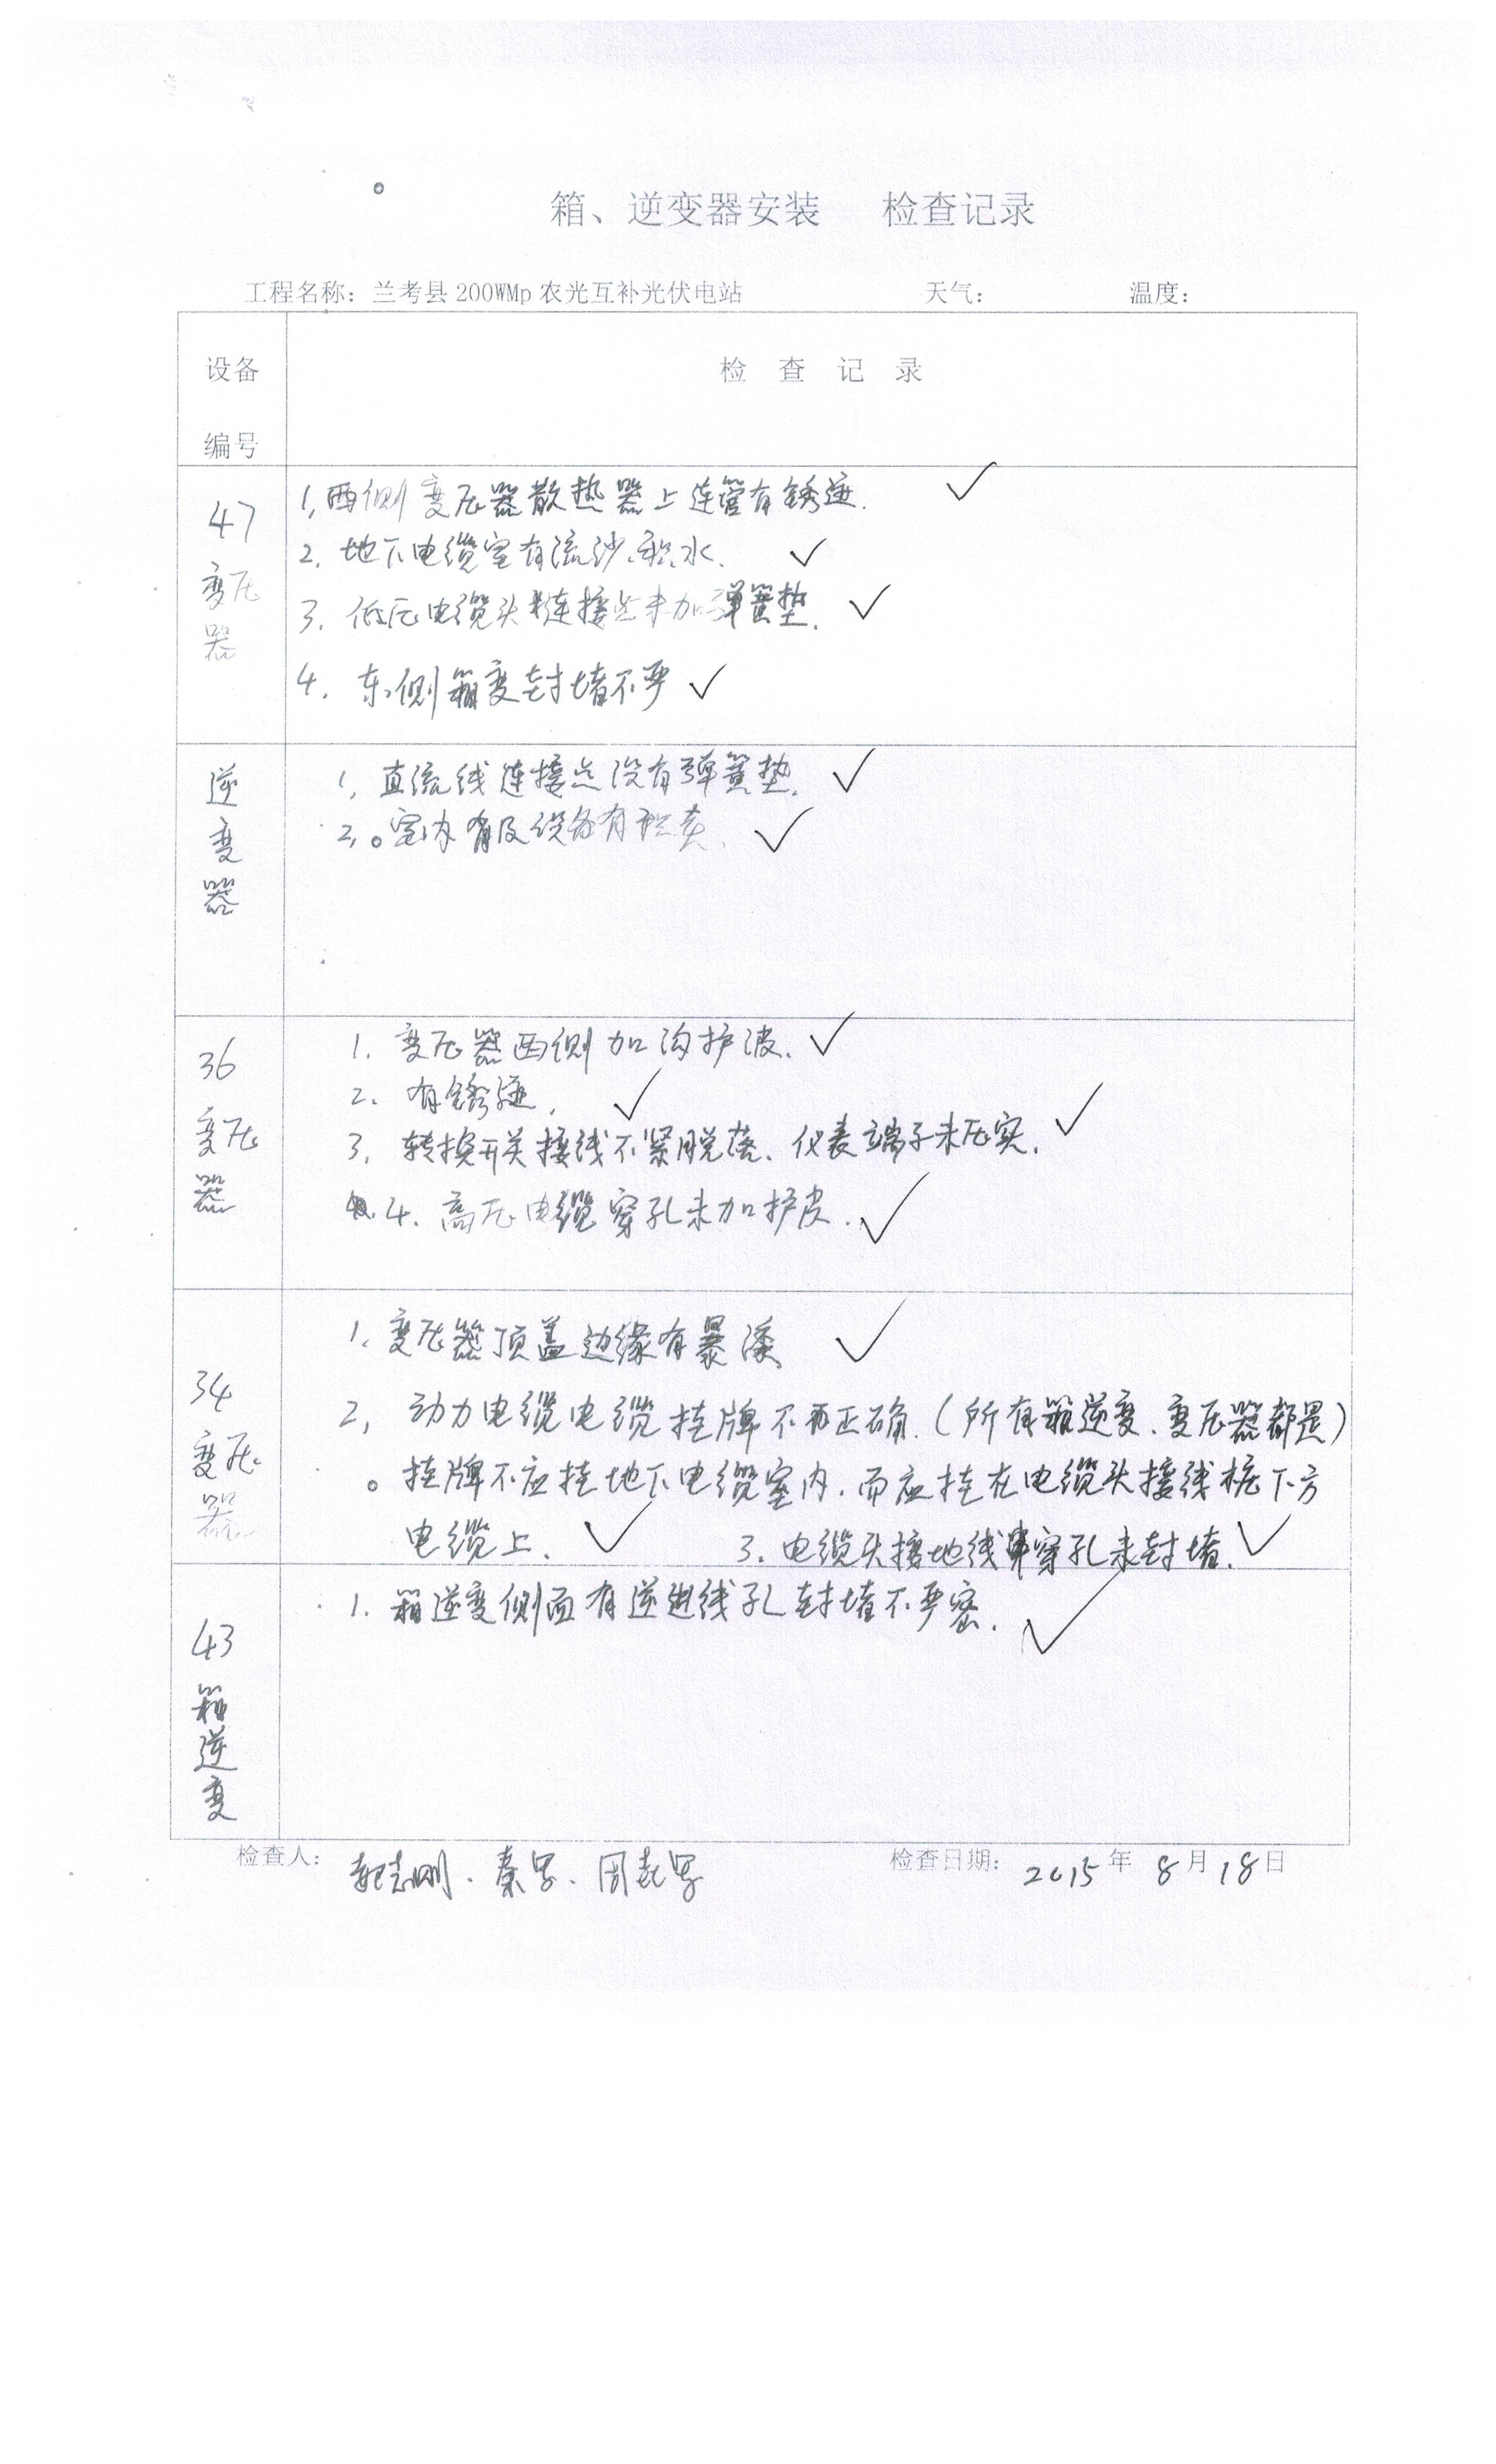 箱、逆变器安装 检查记录
工程名称：兰考县 200WMp 农光互补光伏电站 天气： 温度：
设备
编号
检 查 记 录
47
变压
器
1, 西侧变压器散热器上连管有锈迹. ✓
2. 地下电缆室有流沙.积水. ✓
3. 低压电缆头连接点未加弹簧垫. ✓
4. 东侧箱变封堵不严 ✓
逆
变
器
1, 直流线连接点没有弹簧垫. ✓
2, 室内及设备有积灰. ✓
36
变压
器
1. 变压器西侧加沟护波. ✓
2. 有锈迹. ✓
3. 转换开关接线不紧脱落、仪表端子未压实. ✓
4. 高压电缆穿孔未加护皮. ✓
34
变压
器
1. 变压器顶盖边缘有暴漆 ✓
2, 动力电缆电缆挂牌不正确.(所有箱逆变.变压器都是)
挂牌不应挂地下电缆室内.而应挂在电缆头接线桩下方
电缆上. ✓ 3. 电缆头接地线穿孔未封堵. ✓
43
箱
逆
变
1. 箱逆变侧面有进线孔封堵不严密. ✓
检查人： 志刚、秦 、周 检查日期： 2015年 8月18日